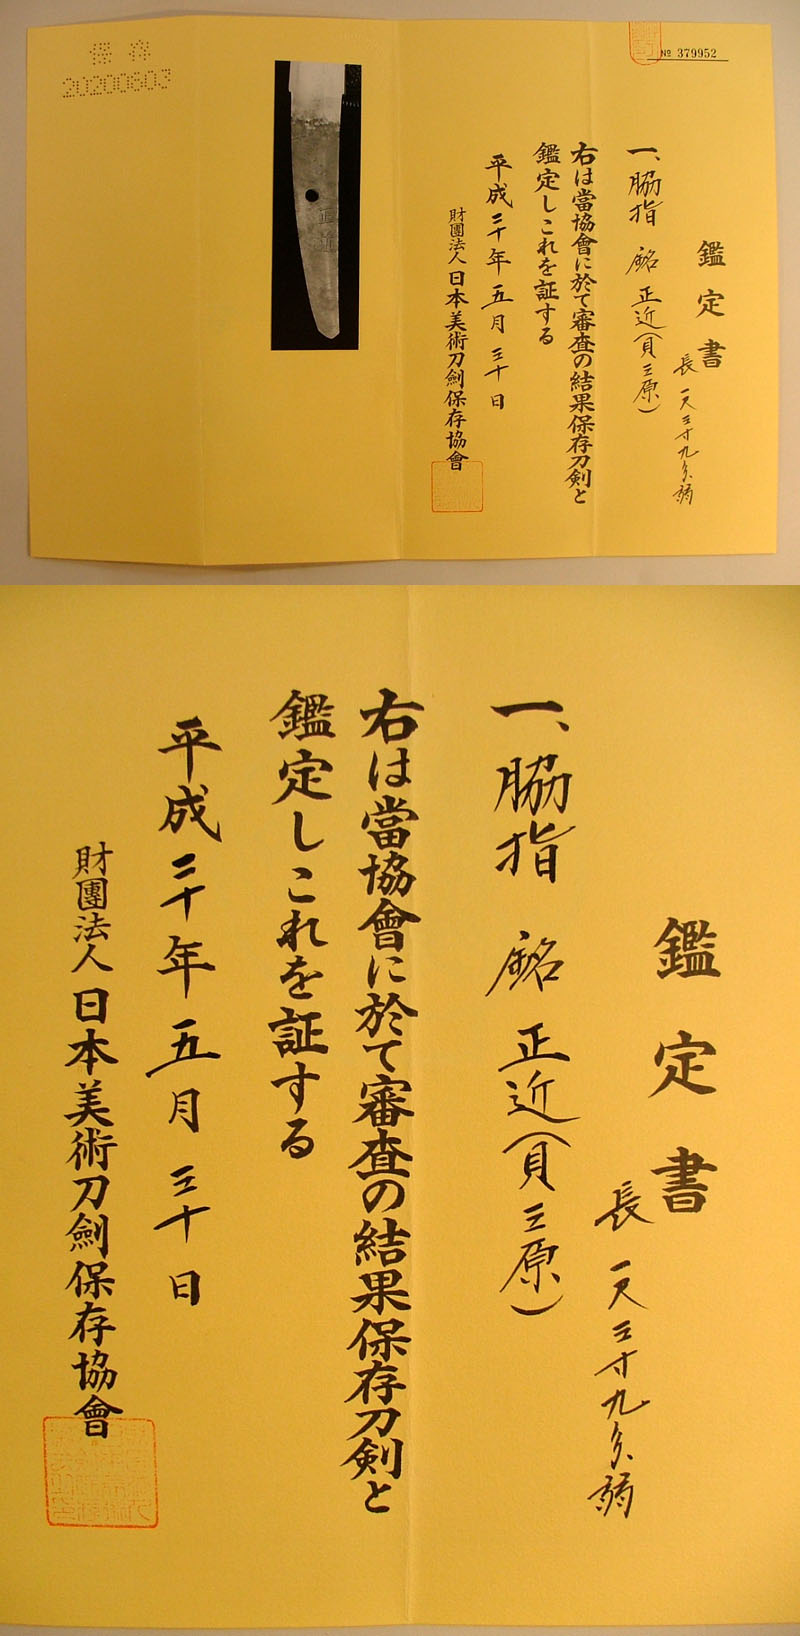 保存
20200603
№ 379952
鑑定書
一、脇指 銘 正近(貝三原)
長一尺三寸九分弱
右は當協會に於て審査の結果保存刀剣と
鑑定しこれを証する
平成二十年五月三十日
財團法人 日本美術刀劍保存協會
正近
鑑定書
一、脇指 銘 正近(貝三原)
長一尺三寸九分弱
右は當協會に於て審査の結果保存刀剣と
鑑定しこれを証する
平成二十年五月三十日
財團法人 日本美術刀劍保存協會